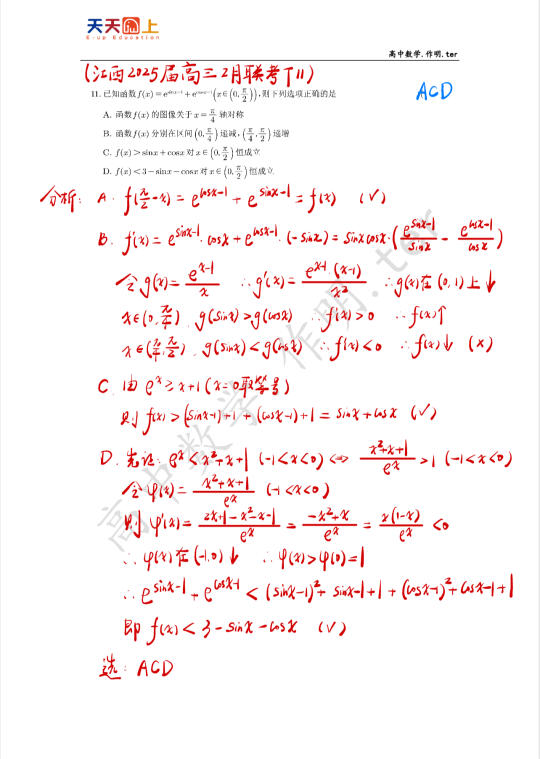 天天向上
E-up Education
高中数学.作明.ter
(江西2025届高三2月联考T11)
11.已知函数f(x)=e^{sinx-1}+e^{cosx-1}(x∈(0,π/2)),则下列选项正确的是
ACD
A. 函数f(x)的图像关于x=π/4轴对称
B. 函数f(x)分别在区间(0,π/4)递减,(π/4,π/2)递增
C. f(x)>sinx+cosx对x∈(0,π/2)恒成立
D. f(x)<3-sinx-cosx对x∈(0,π/2)恒成立
分析: A. f(π/2-x)=e^{cosx-1}+e^{sinx-1}=f(x) (√)
B. f'(x)=e^{sinx-1}·cosx+e^{cosx-1}·(-sinx)=sinxcosx·(e^{sinx-1}/sinx-e^{cosx-1}/cosx)
令g(x)=e^{x-1}/x ∴g'(x)=e^{x-1}·(x-1)/x² ∴g(x)在(0,1)上↓
x∈(0,π/4), g(sinx)>g(cosx) ∴f'(x)>0 ∴f(x)↑
x∈(π/4,π/2), g(sinx)<g(cosx) ∴f'(x)<0 ∴f(x)↓ (×)
C. 由e^x≥x+1(x=0取等号)
则f(x)>(sinx-1)+1+(cosx-1)+1=sinx+cosx (√)
D. 先证: e^x<x²+x+1 (-1<x<0) ⇔ (x²+x+1)/e^x>1 (-1<x<0)
令φ(x)=(x²+x+1)/e^x (-1<x<0)
则φ'(x)=(2x+1-x²-x-1)/e^x=(-x²+x)/e^x=x(1-x)/e^x<0
∴φ(x)在(-1,0)↓ ∴φ(x)>φ(0)=1
∴e^{sinx-1}+e^{cosx-1}<(sinx-1)²+sinx-1+1+(cosx-1)²+cosx-1+1
即f(x)<3-sinx-cosx (√)
选: ACD
高中数学.作明.ter